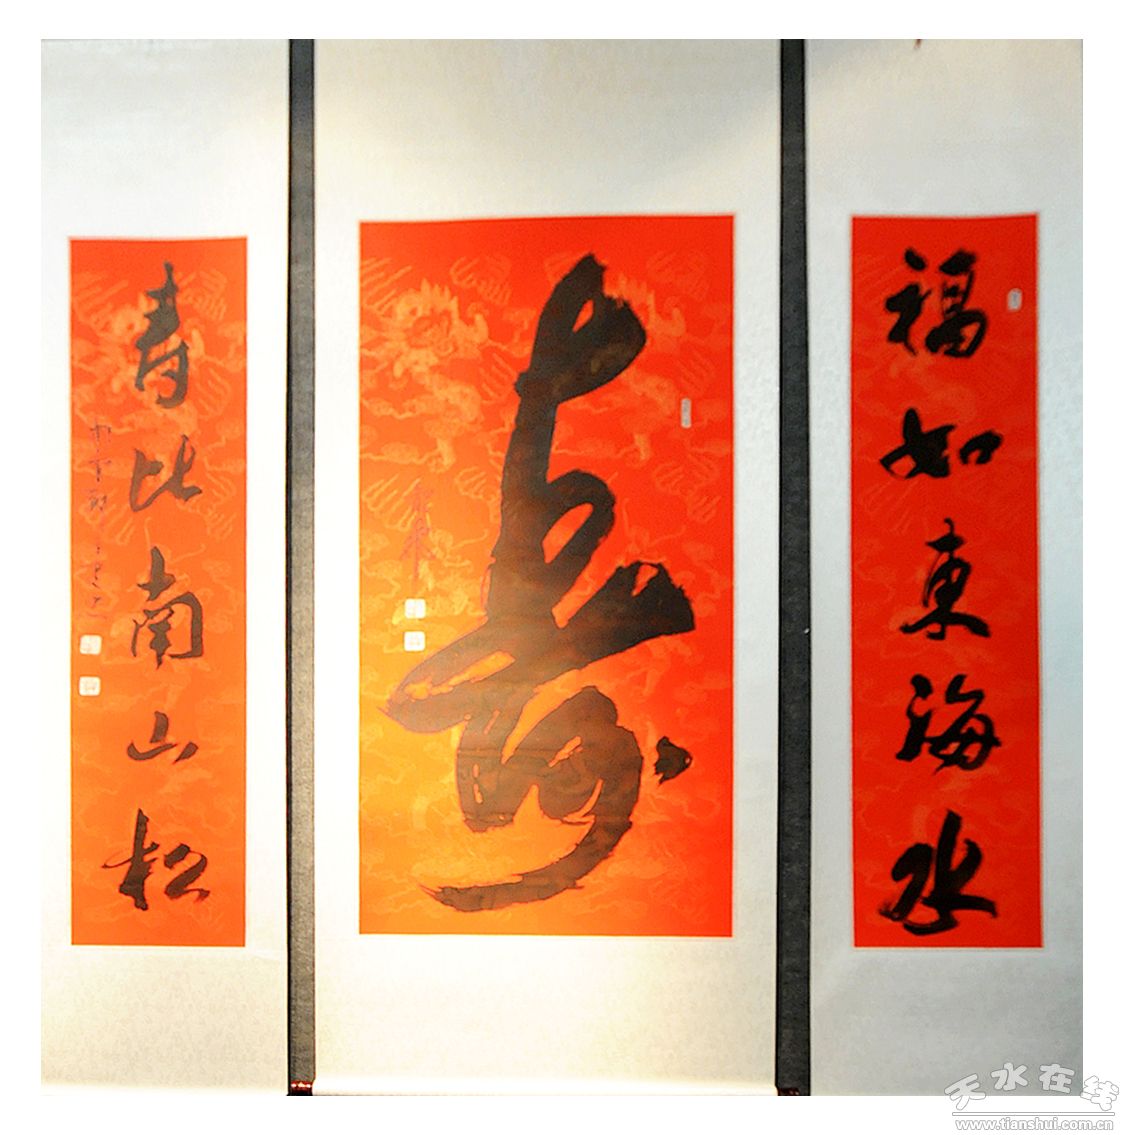 福如東海水
寿
寿比南山松
天水在线
www.tianshui.com.cn